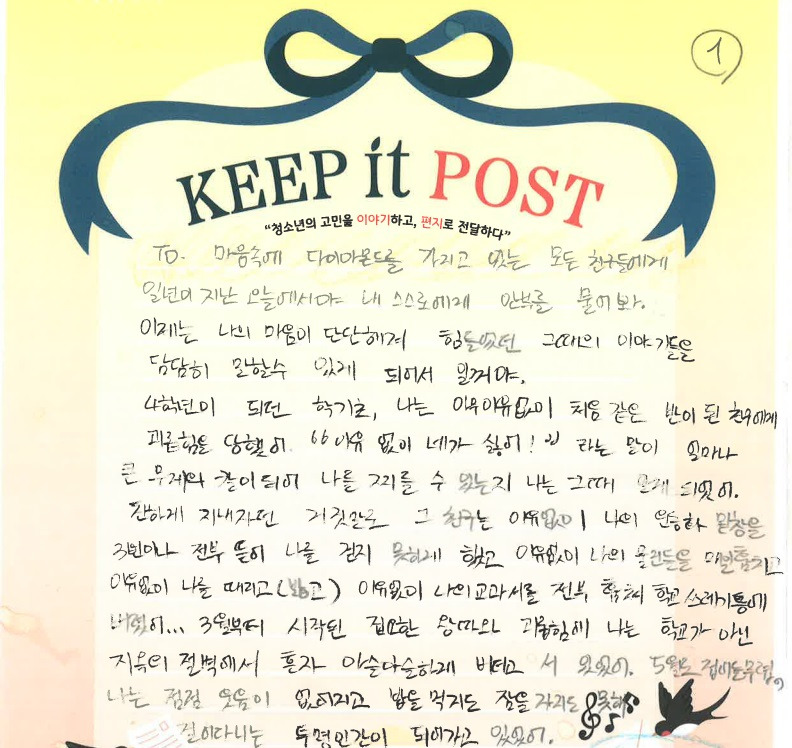 1
KEEP it POST
"청소년의 고민을 이야기하고, 편지로 전달하다"
TO. 마음속에 다이아몬드를 가지고 있는 모든 친구들에게
일년이 지난 오늘에서야 내 스스로에게 안부를 물어봐.
이제는 나의 마음이 단단해져 힘들었던 그때의 이야기들을
담담히 말할수 있게 되어서 일꺼야.
4학년이 되던 학기초, 나는 이유이유없이 처음 같은 반이 된 친구에게
괴롭힘을 당했어. "이유 없이 네가 싫어!" 라는 말이 얼마나
큰 무게와 칼이 되어 나를 찌를 수 있는지 나는 그때 알게 되었어.
친하게 지내자던 거짓말로 그 친구는 이유없이 나의 운동화 밑창을
3번이나 전부 뜯어 나를 걷지 못하게 했고 이유없이 나의 물건들을 매일 훔치고
이유없이 나를 때리고(밟고) 이유없이 나의 교과서를 전부 훔쳐 학교 쓰레기통에
버렸어... 3월부터 시작된 집요한 왕따와 괴롭힘에 나는 학교가 아닌
지옥의 절벽에서 혼자 아슬아슬하게 버티고 서 있었어. 5월로 접어들무렵,
나는 점점 웃음이 없어지고 밥을 먹지도 잠을 자지도 못해
걸어다니는 투명인간이 되어가고 있었어.